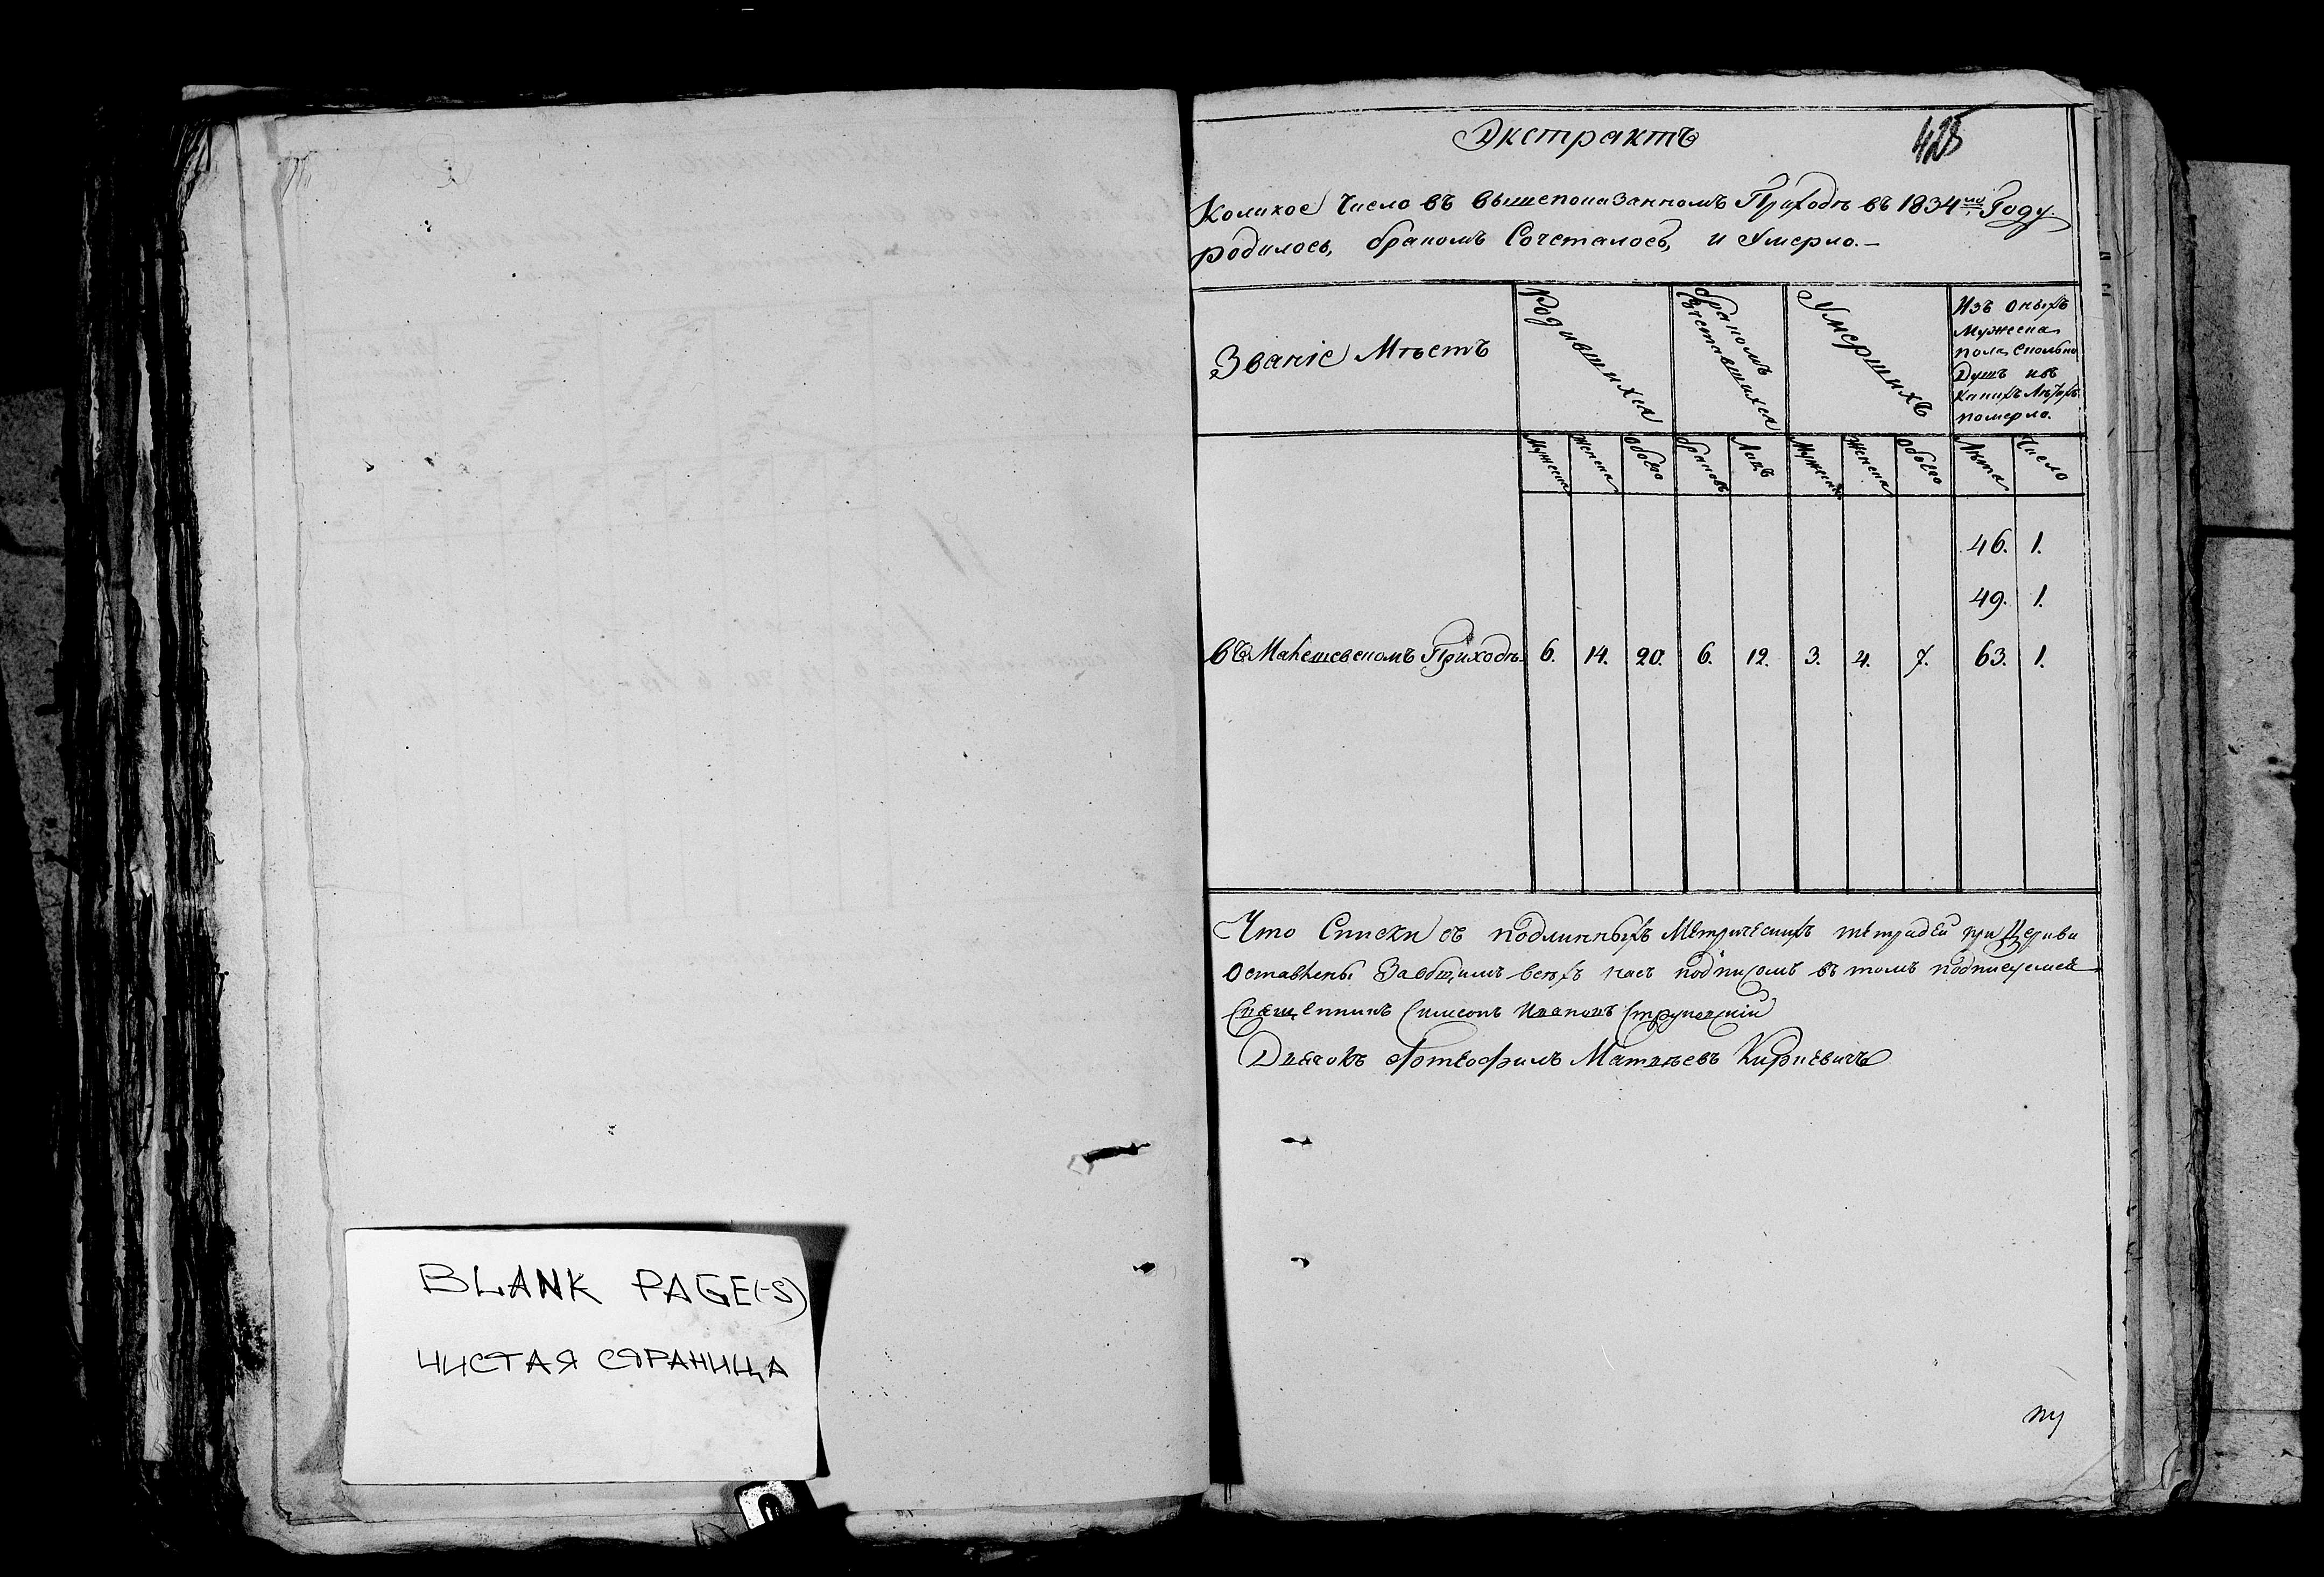 BLANK PAGE(-S)
ЧИСТАЯ СТРАНИЦА
Экстрактъ
425
Коликое Число въ вышепоказанномъ Приходѣ въ 1834мъ Году
родилось, бракомъ Сочеталось, и Умерло.—
Званіе Мѣстъ
Родившихся
бракомъ
Сочетавшихся
Умершихъ
Изъ оныхъ
Мужеска
пола сколько
Душъ и въ
какихъ лѣтахъ
померло.
Мужеска
Женска
Обоего
браковъ
Лицъ
Мужеска
Женска
Обоего
Лѣта
Число
46. 1.
49. 1.
въ Макешевскомъ Приходѣ 6. 14. 20. 6. 12. 3. 4. 7. 63. 1.
Что Списки съ подлинныхъ Метрическихъ тетрадей при Церкви
Оставлены За общимъ всѣхъ насъ подписомъ въ томъ подписуемся
Священникъ Симеонъ Ивановъ
Дьячокъ Матвѣевъ